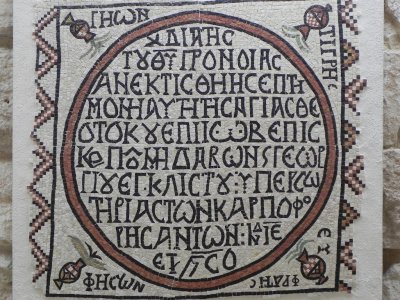 ΓΗΩΝ
ΤΙΓΡΗϹ
ΔΙΑΤΗϹ
ΤΥΘΥΠΡΟΝΟΙΑϹ
ΑΝΕΚΤΙϹΘΗΗϹΕΠΤΗ
ΜΟΝΗΑΥΤΗΤΗϹΑΓΙΑϹΘΕ
ΟΤΟΚΥΕΠΙΙΩΒΕΠΙϹ
ΚΩΠΟΥΜΗΔΑΒΩΝϹΓΕΩΡ
ΓΙΟΥΕΓΚΛΙϹΤΟΥ:ΥΠΕΡϹΩ
ΤΗΡΙΑϹΤΩΝΚΑΡΠΟΦΟ
ΡΗϹΑΝΤΩΝ:ΙΝΔΙΕ
ΕΤ/Π/ϹΟ
ΦΗϹΩΝ
ΕΥ
ΦΡΑΤΗϹ